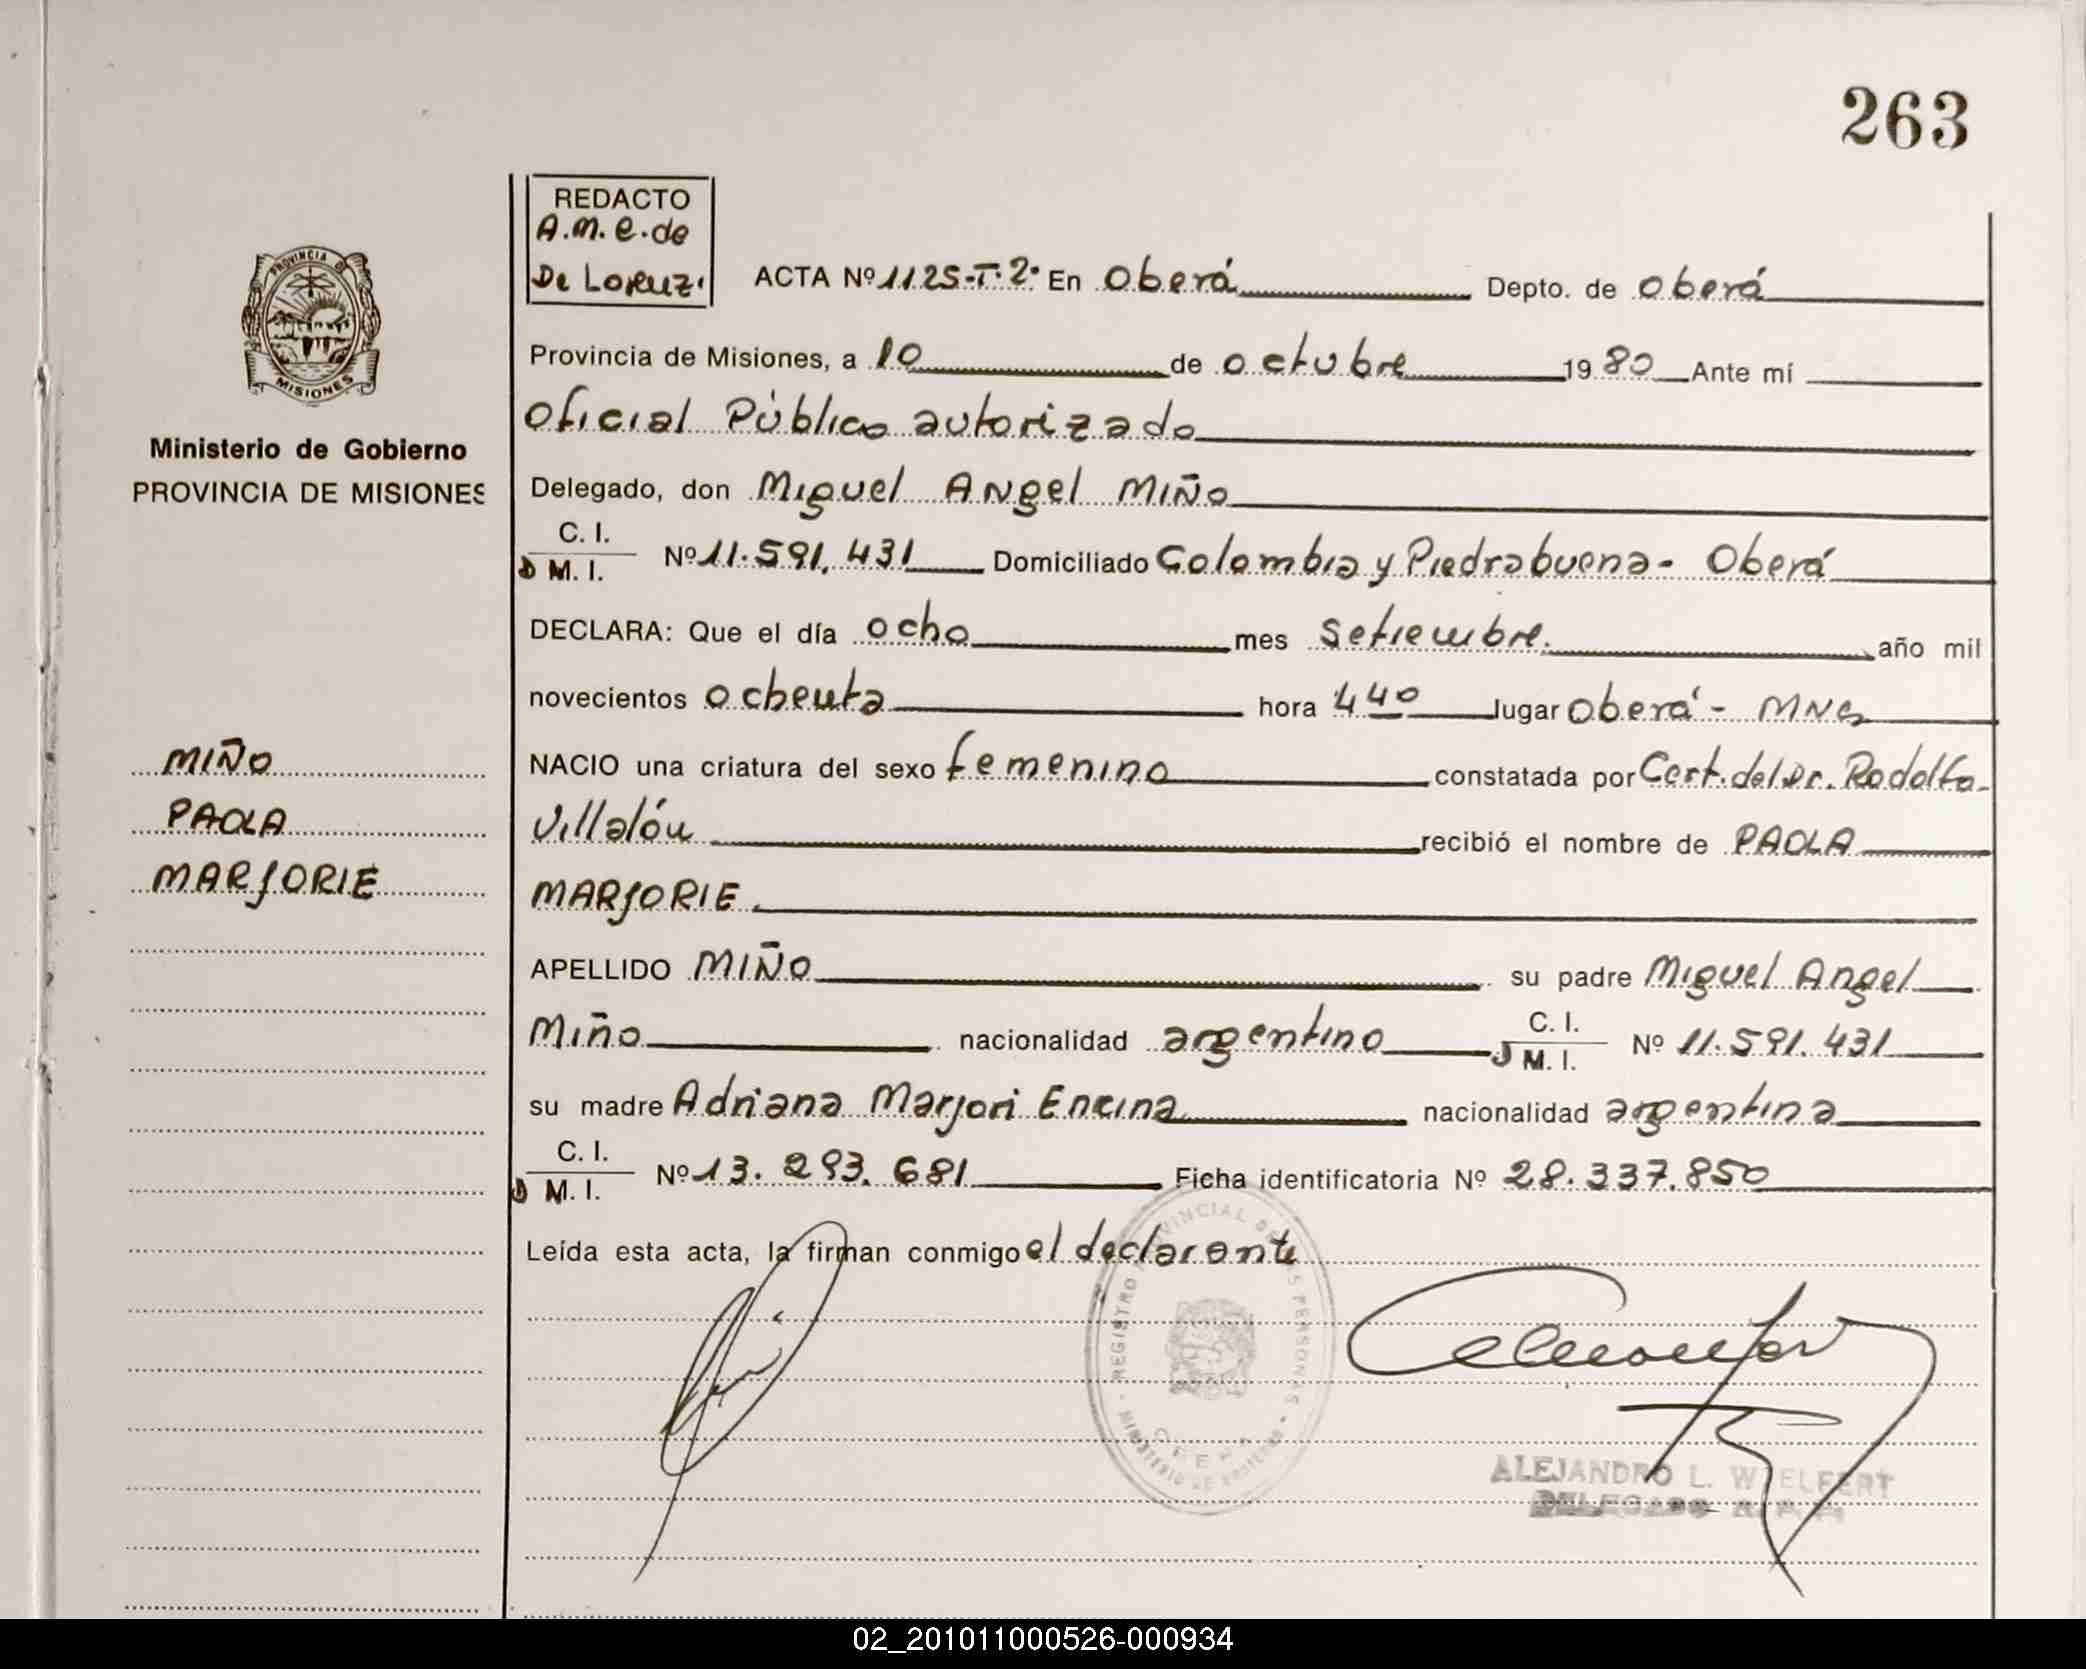 263
REDACTO
A.M.E. de
De Lorenz.
PROVINCIA DE
MISIONES
Ministerio de Gobierno
PROVINCIA DE MISIONES
MIÑO
PAOLA
MARJORIE
ACTA Nº 1125-T.2º En Oberá Depto. de Oberá
Provincia de Misiones, a 10 de octubre 1980 Ante mí
Oficial Público autorizado
Delegado, don Miguel Angel Miño
C. I.
D M. I. Nº 11.591.431 Domiciliado Colombia y Piedrabuena - Oberá
DECLARA: Que el día ocho mes setiembre. año mil
novecientos ochenta hora 4 40 lugar Oberá - MNES
NACIO una criatura del sexo femenino constatada por Cert. del Dr. Rodolfo
Villalón recibió el nombre de PAOLA
MARJORIE.
APELLIDO MIÑO su padre Miguel Angel
Miño nacionalidad argentino C. I. D M. I. Nº 11.591.431
su madre Adriana Marjori Encina nacionalidad argentina
C. I.
D M. I. Nº 13.293.681 Ficha identificatoria Nº 28.337.850
Leída esta acta, la firman conmigo el declarante
REGISTRO PROVINCIAL DE LAS PERSONAS
MINISTERIO DE GOBIERNO
OBERA
ALEJANDRO L. WELFERT
DELEGADO
02_201011000526-000934